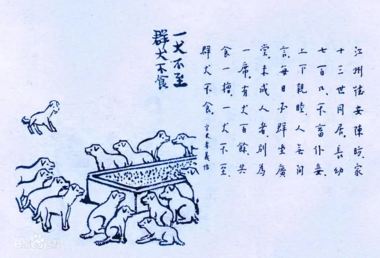 江州德安陳昉家
十三世同居長幼
七百口不畜仆妾
上下親睦人無間
言每日必群坐廣
堂未成人者别為
一席有犬百餘共
食一槽一犬不至
群犬不食
一犬不至
群犬不食